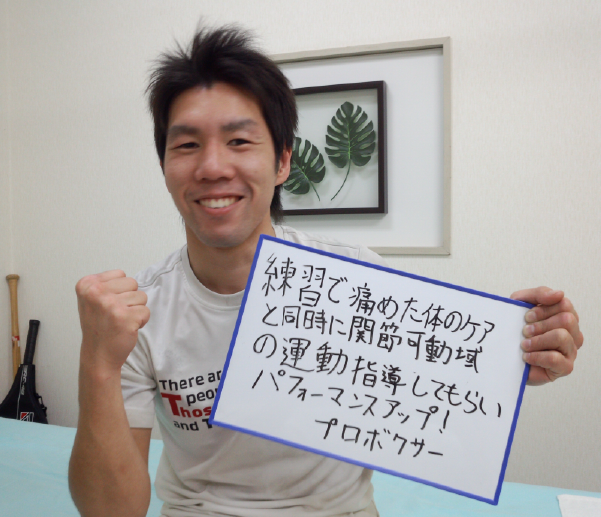 練習で痛めた体のケア
と同時に関節可動域
の運動指導してもらい
パフォーマンスアップ!
プロボクサー
There are
peop
Thos
and T